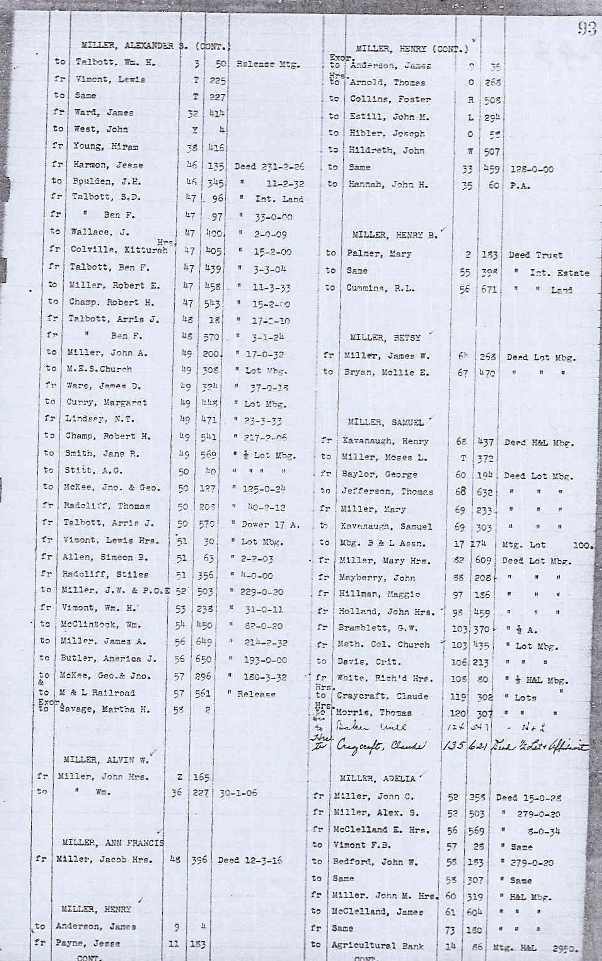 93
MILLER, ALEXANDER S. (CONT.)
to Talbott, Wm. H. 3 50 Release Mtg.
fr Vimont, Lewis T 225
to Same T 227
fr Ward, James 32 414
to West, John Y 4
fr Young, Hiram 38 416
fr Harmon, Jesse 46 135 Deed 231-2-26
to Boulden, J.H. 46 345 " 11-2-32
fr Talbott, S.D. 47 96 " Int. Land
fr " Ben F. 47 97 " 33-0-00
to Wallace, J. 47 400 " 2-0-09
fr Colville, Kitturah Hrs. 47 405 " 15-2-00
fr Talbott, Ben F. 47 439 " 3-3-04
to Miller, Robert E. 47 458 " 11-3-33
to Champ, Robert H. 47 543 " 15-2-00
fr Talbott, Arris J. 48 18 " 17-2-10
fr " Ben F. 48 570 " 3-1-24
to Miller, John A. 49 200 " 17-0-32
to M.E.S.Church 49 308 " Lot Mbg.
fr Ware, James D. 49 324 " 37-0-18
to Curry, Margaret 49 448 " Lot Mbg.
fr Lindsey, N.T. 49 471 " 23-3-33
to Champ, Robert H. 49 541 " 217-2-06
to Smith, Jane R. 49 569 " ½ Lot Mbg.
to Stitt, A.G. 50 40 " " "
to McKee, Jno. & Geo. 50 127 " 125-0-24
fr Radcliff, Thomas 50 208 " 40-2-12
fr Talbott, Arris J. 50 570 " Dower 17 A.
fr Vimont, Lewis Hrs. 51 30 " Lot Mbg.
fr Allen, Simeon B. 51 63 " 2-2-03
fr Radcliff, Stiles 51 356 " 4-0-00
to Miller, J.W. & P.O.E 52 503 " 229-0-20
fr Vimont, Wm. H. 53 238 " 31-0-11
to McClintock, Wm. 54 450 " 82-0-20
to Miller, James A. 56 649 " 214-2-32
to Butler, America J. 56 650 " 193-0-00
to McKee, Geo.& Jno. 57 296 " 180-3-32
& to M & L Railroad 57 561 " Release
Exor. to Savage, Martha H. 58 2
MILLER, ALVIN W.
fr Miller, John Hrs. Z 165
to " Wm. 36 227 30-1-06
MILLER, ANN FRANCIS
fr Miller, Jacob Hrs. 48 396 Deed 12-3-16
MILLER, HENRY
to Anderson, James 9 4
fr Payne, Jesse 11 183
CONT.
MILLER, HENRY (CONT.)
Exor. to Anderson, James O 36
Hrs. to Arnold, Thomas O 268
to Collins, Foster R 508
to Estill, John M. L 294
to Hibler, Joseph O 58
to Hildreth, John W 507
to Same 33 459 128-0-00
to Hannah, John H. 35 60 P.A.
MILLER, HENRY B.
to Palmer, Mary 2 183 Deed Trust
to Same 55 398 " Int. Estate
to Cummins, R.L. 56 671 " " Land
MILLER, BETSY
fr Miller, James W. 64 268 Deed Lot Mbg.
to Bryan, Mollie E. 67 470 " " "
MILLER, SAMUEL
fr Kavanaugh, Henry 68 437 Deed H&L Mbg.
to Miller, Moses L. T 372
fr Baylor, George 60 194 Deed Lot Mbg.
to Jefferson, Thomas 68 632 " " "
fr Miller, Mary 69 233 " " "
to Kavanaugh, Samuel 69 303 " " "
to Mbg. B & L Assn. 17 174 Mtg. Lot 100.
fr Miller, Mary Hrs. 82 609 Deed Lot Mbg.
fr Mayberry, John 88 208 " " "
fr Hillman, Maggie 97 186 " " "
fr Holland, John Hrs. 98 459 " " "
fr Bramblett, G.W. 103 370 " ½ A.
fr Meth. Col. Church 103 435 " Lot Mbg.
to Davis, Crit. 106 213 " " "
fr White, Rich'd Hrs. 108 80 " ½ H&L Mbg.
Hrs. to Craycraft, Claude 119 302 " Lots "
Hrs. to Morris, Thomas 120 307 " " "
to Baker 124
Hrs to Craycraft, Claude 135 621 Deed Lot & Affidavit
MILLER, ADELIA
fr Miller, John C. 52 258 Deed 15-0-28
fr Miller, Alex. S. 52 503 " 279-0-20
fr McClelland E. Hrs. 56 569 " 8-0-34
to Vimont F.B. 57 28 " Same
to Redford, John W. 58 183 " 279-0-20
to Same 58 307 " Same
fr Miller. John M. Hrs. 60 319 " H&L Mbg.
to McClelland, James 61 604 " " "
fr Same 73 180 " " "
to Agricultural Bank 14 86 Mtg. H&L 2950.
CONT.